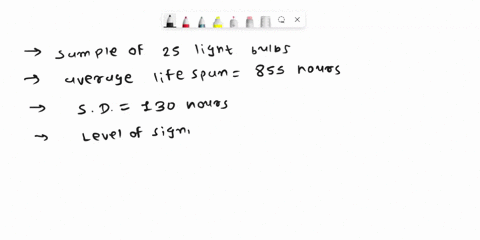 → sample of 25 light bulbs
→ average life span = 855 hours
→ S.D. = 130 hours
→ Level of sign,